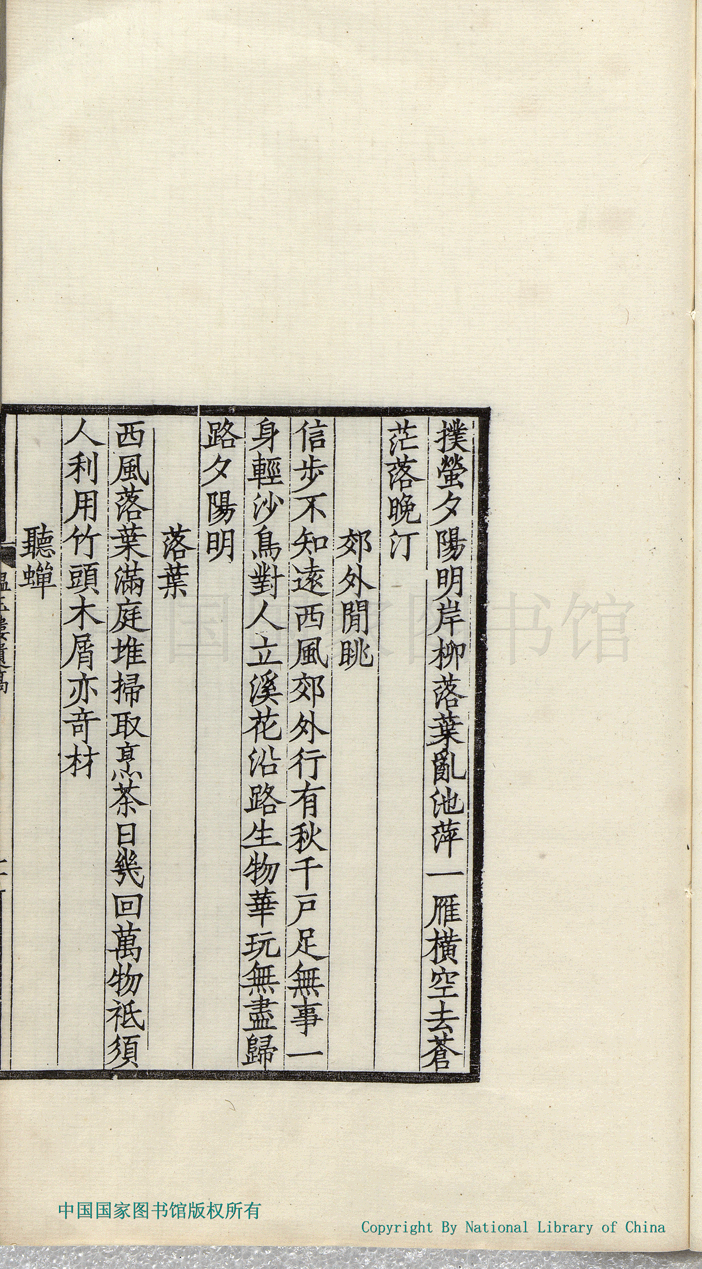 撲螢夕陽明岸柳落葉亂池萍一雁橫空去蒼
茫落晚汀
郊外閒眺
信步不知遠西風郊外行有秋千戶足無事一
身輕沙鳥對人立溪花沿路生物華玩無盡歸
路夕陽明
落葉
西風落葉滿庭堆掃取烹茶日幾回萬物祗須
人利用竹頭木屑亦奇材
聽蟬
中国国家图书馆版权所有
Copyright By National Library of China